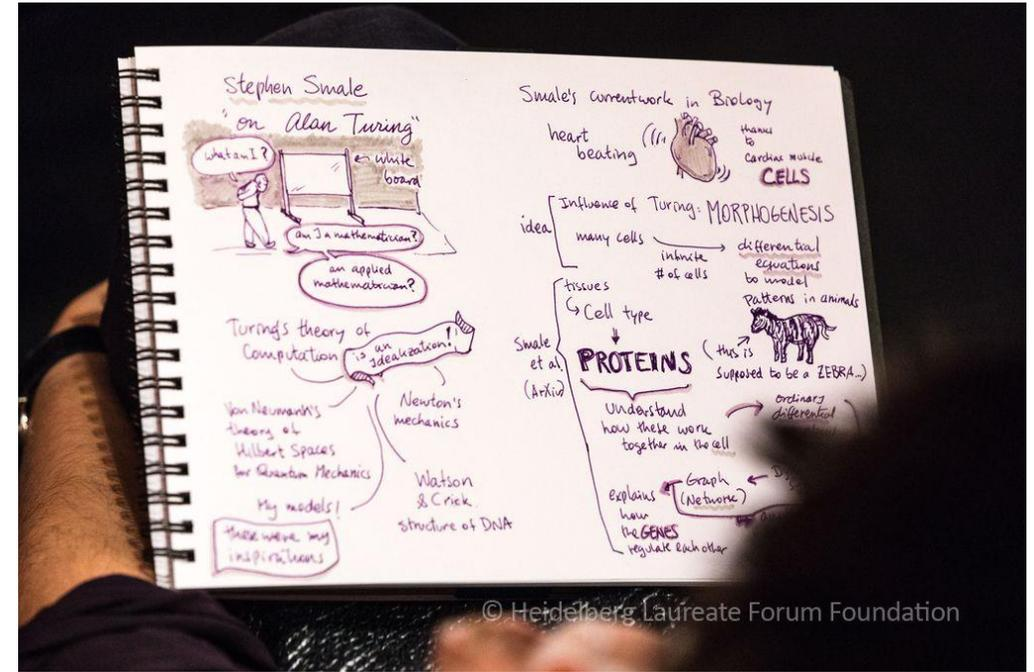 Stephen Smale
"on Alan Turing"
what am I?
← white
board
am I a mathematician?
an applied
mathematician?
Turing's theory of
Computation
is an
Idealization!
Von Neumann's
theory of
Hilbert Spaces
for Quantum Mechanics
Newton's
mechanics
Watson
& Crick
structure of DNA
My models!
these were my
inspirations
Smale's current work in Biology
heart
beating
thanks
to
Cardiac muscle
CELLS
idea
Influence of Turing: MORPHOGENESIS
many cells
infinite
# of cells
differential
equations
to model
Patterns in animals
(this is
supposed to be a ZEBRA...)
Smale
et al
(ArXiv)
tissues
Cell type
PROTEINS
Understand
how these work
together in the cell
ordinary
differential
Graph
(Network)
explains
how
the GENES
regulate each other
© Heidelberg Laureate Forum Foundation